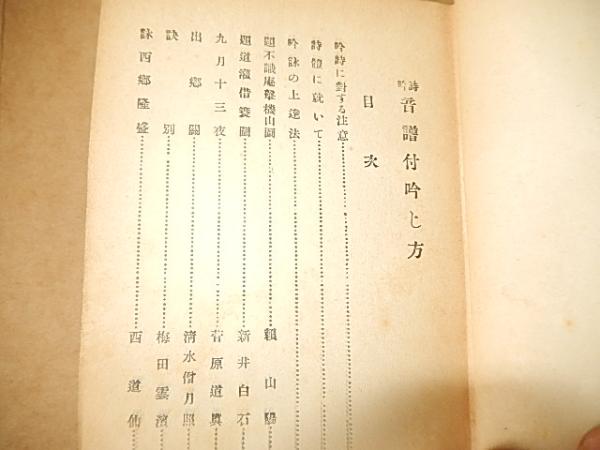 詩吟 音譜付吟じ方
目次
吟詩に對する注意
詩體に就いて
吟詠の上達法
題不識庵擊機山圖 賴山陽
題道灌借簑圖 新井白石
九月十三夜 菅原道眞
出鄕關 淸水僧月照
訣別 梅田雲濱
詠西鄕隆盛 西道僊